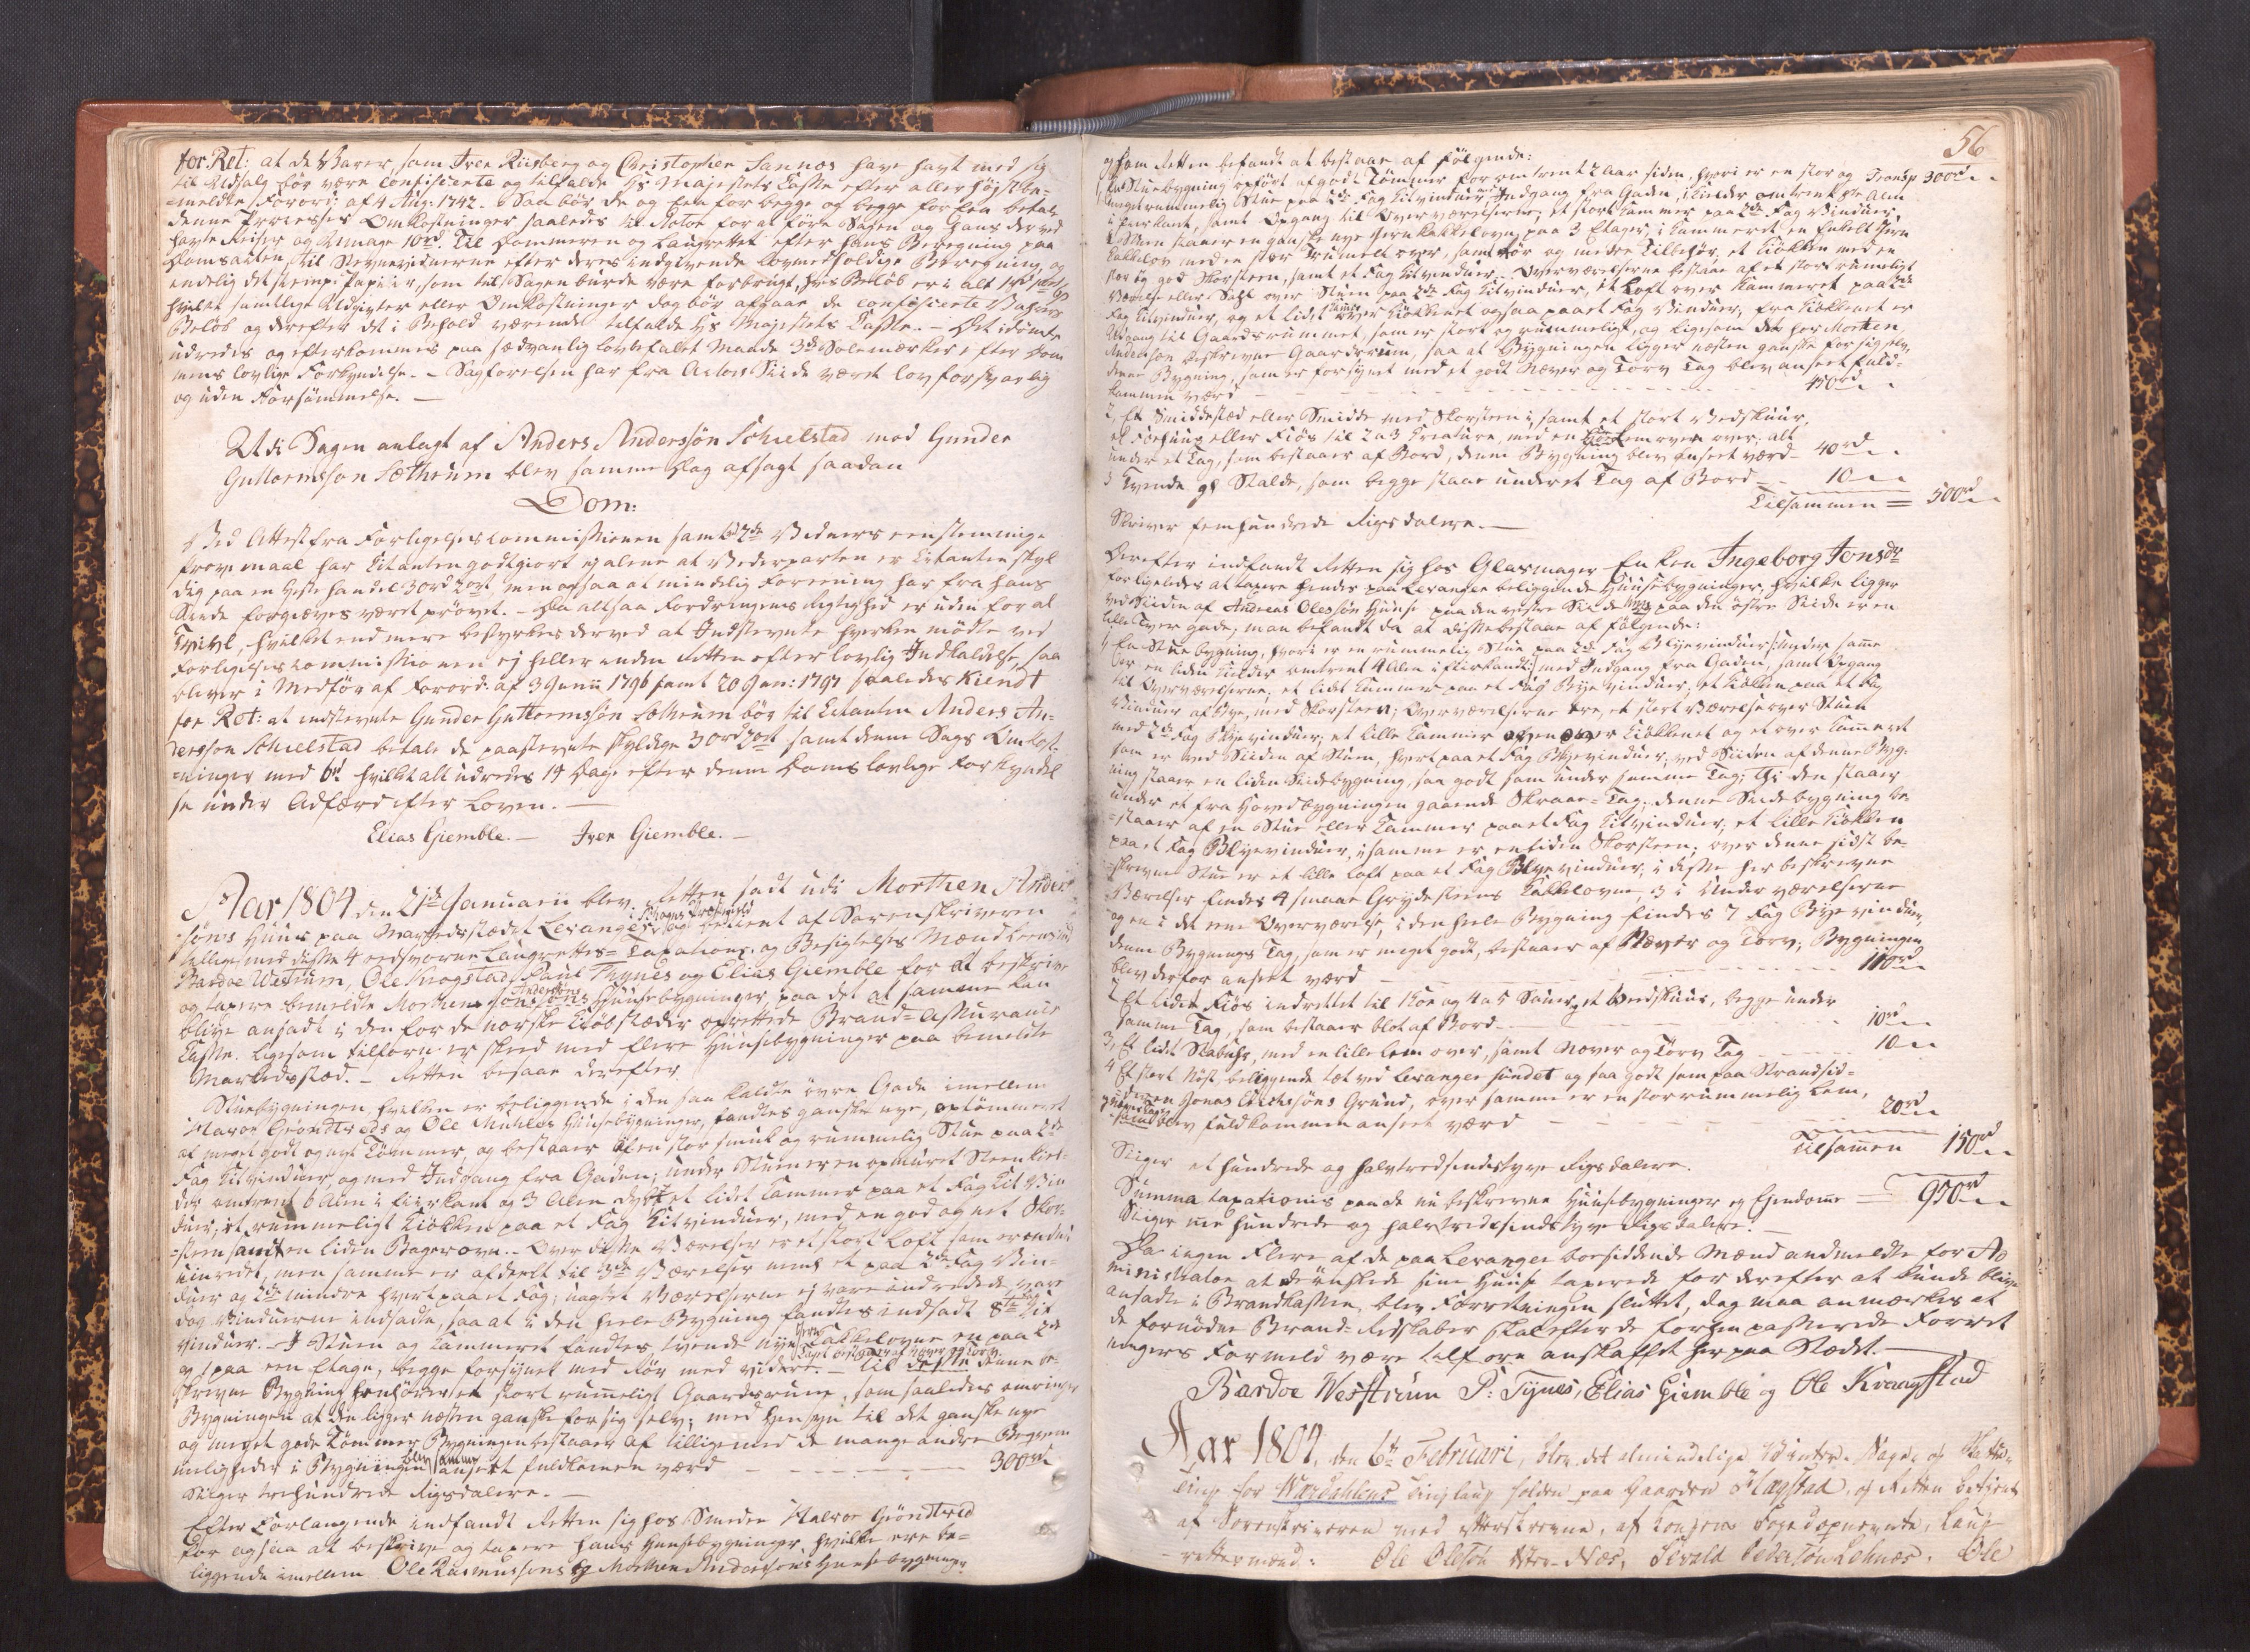 for Ret: at de Varer, som Iver Riisberg og Christopher Sannos have havt med sig
til Udsalg bør være confisierte og tilfalde Hs Majestets Casse efter allerhøjstbe-
=meldte Forord: af 4 Aug: 1742. Saa bør de og een for begge og begge for een betale
denne Processes Omkostninger saaledes til Actor for at føre Sagen og hans derved
havte Reiser og Umage 10rd. Til Dommeren og Laugrettet efter hans Beregning paa
Domsacten, til Stevnevidnerne efter deres indgivende lovmedholdige Beregning, og
endelig det stemp: Papiir, som til Sagen burde være forbrugt, hvis Beløb er i alt
hvilke samtlige Udgivter eller Omkostninger dog bør afgaae de confisierte Vahres
Beløb og derefter det i Behold værende tilfalde Hs Majestets Casse. - Det idømte
udredes og efterkommes paa sædvanlig lovbefalet Maade 3de Solemærker efter Dom
mens lovlige Forkyndelse. - Sagførelsen har fra Actors Side været lovforsvarlig
og uden Forsømmelse. -
Udi Sagen anlagt af Anders Anderssøn Schielstad mod Gunder
Guttormssøn Sætherum blev samme Dag afsagt saadan
Dom:
Ved Attest fra Forligelses Commissionen samt 2de Vidners eenstemmige
Prov maal har Citanten godtgiort ej alene at Vederparten er Citanten skyl
dig paa en Hestehandel 3 ord 2 ort, men ogsaa at mindelig Foreening har fra hans
Siide forgieves været prøvet. - Da altsaa Fordringens Rigtighed er uden for al
Tvivl, hvilket end mere bestyrkes derved at Indstevnte hverken mødte ved
Forligelses Commissionen ej heller inden Retten efter lovlig Indkaldelse, saa
bliver i Medfør af Forord: af 3 Junii 1796 samt 20 Jan: 1797 saaledes Kiendt
for Ret: at indstevnte Gunder Guttormssøn Sætherum bør til Citanten Anders An-
dersson Schielstad betale de paastevnte skyldige 3 ord 2 ort samt denne Sags Omkost-
=ninger med 6rd hvilket alt udredes 14 Dage efter denne Doms lovlige Forkyndel
se under Adfærd efter Loven. -
Elias Giemble. - Iver Giemble. -
Aar 1804 den 21de Januarii blev Retten sadt udi Morthen Anders
søns Huus paa Markedsstædet Levanger i Schogns Præstegield og betient af Sorenskriveren
tillige med disse 4 eedsvorne Laugrettes= Taxations og Besigtelses Mænd
Bardoe Westrum, Ole Kragstad, Paul Thynes og Elias Giemble for at beskrive
og taxere bemeldte Morthen Anderssøns Huusebygninger, paa det at samme kan
blive ansadt i den for de norske Kiøbstæder oprettede Brand=Assurance
Casse. Ligesom tilforn er skeed med flere Huusebygninger paa bemeldte
Markedsstæd. - Retten besaae derefter
Stuebygningen, hvilken er beliggende i den saa kaldte øvre Gade imellem
Halvor Grøndtveds og Ole Muhles Huusebygninger, fandtes ganske nye, optømmeret
af meget godt og nyt Tømmer, og bestaaer af en stor smuk og rummelig Stue paa 2de
Fag Kitvinduer, og med Indgang fra Gaden; under Stuen er en opmuret Steen kiel-
der omtrent 6 Alen i fiirkant og 3 Alen dyb; et lidet Kammer paa et Fag Kit Vin
duer, et rummeligt Kiøkken paa et Fag Kitvinduer, med en god og nit Skor-
=steen samt en liden Bagerovn. - Over disse Værelser er et stort Loft som er endnu
uinredet, men samme er afdeelt til 3de Værelser nemlig et paa 2de Fag Vin-
duer og 2de mindre hvert paa et Fag; uagtet Værelserne ej vare indredede, vare
dog Vinduerne indsadte, saa at i den heele Bygning fandtes indsadt 8te Fag Kit
Vinduer. - I Stuen og Kammeret fandtes tvende nye Jern Kakkelovne en paa 2de
og 1 paa een Etage, begge forsynet med Rør med videre. - Taget bestaaer af Næver og Torv. - Til denne be-
skrevne Bygning henhører et stort rummeligt Gaardsrum, som saaledes omringer
Bygningen at den ligger næsten ganske for sig selv; med Hensyn til det ganske nye
og meget gode Tømmer Bygningen bestaaer af tilligemed de mange andre Beqvem
meligheder i Bygningen blev samme anseet fuldkomen værd - - - - - 300rd
Siiger trehundrede Rigsdalere. -
Efter Forlangende indfandt Retten sig hos Smeden Halvor Grøndtved
for ogsaa at beskrive og taxere hans Huusebygninger, hvilke ere be=
liggende imellem Ole Rasmussons og Morthen Anderssøns Huusebygninger
56
og som Retten befandt at bestaae af følgende: Transp 300rd
1, En Stuebygning opført af godt Tømmer for omtrent 2 Aar siden, hvori er en stor og
meget rummelig Stue paa 2de Fag Kitvinduer med Indgang fra Gaden, Kielder omtrent 6te Alen
i fiirkant, samt Opgang til Overværelserne; et stort Kammer paa 2de Fag Vinduer,
i Stuen staaer en ganske nye Jernkakkelovn paa 3 Etager; i Kammeret en enkelt Jern
Kakkelov med en stor Trumel over, samt Rør og andre Tilbehør, et Kiøkken med en
stor og god Skorsteen, samt et Fag Kitvinduer. Overværelserne bestaae af et stort rumeligt
Værelse eller Sahl over Stuen paa 2de Fag Kitvinduer, et Loft over Kammeret paa 2de
Fag Kitvinduer, og et lidet Kammer over Kiøkkenet ogsaa paa et Fag Vinduer, fra Kiøkkenet er
Udgang til Gaardsrummet, som er stort og rummeligt, og ligesom det for Morthen
Anderssøn beskrevne Gaardsrum, saa at Bygningen ligger næsten ganske for sig selv,
denne Bygning, som er forsynet med et godt Næver og Torv Tag blev anseet fuld=
kommen værd - - - - - 450rd
2, Et Smiddested eller Smidde med Skorsteen i, samt et stort Vedskuur,
et Fiøs til 2 a 3 Creature, med en Lem over; alt
under et Tag, som bestaaer af Bord, denne Bygning blev anseet værd - 40rd
3 Tvende gl Stalde, som begge staae under et Tag af Bord - - 10 - -
Tilsammen = 500rd
Skriver femhundrede Rigsdalere. -
Derefter indfandt Retten sig hos Glasmager Enken Ingeborg Jonsdr
for ligeledes at taxere hendes paa Levanger beliggende Huusebygninger, hvilke ligger
ved Siiden af Andreas Olessøn Huuse paa den vestre Side, paa den østre Side er en
lille Tver gade; man befandt da at disse bestaae af følgende:
1, En Stuebygning, hvori er en rummelig Stue paa 2de Fag Blyevinduer /: under samme
er en liden Kielder omtrent 4 Alen i fiirkandt :/ med Indgang fra Gaden, samt Opgang
til Overværelserne, et lidet Kammer paa et Fag Blye vinduer, et Kiøkken paa et Fag
Vinduer af Blye, med Skorsteen; Overværelserne ere, et stort Værelse over Stuen
med 2de Fag Blyevinduer; et lille Kammer oven over Kiøkkenet og et over Kammeret
som er ved Siiden af Stuen, hvert paa et Fag Blyevinduer; ved Siiden af denne Byg-
ning staaer en liden Siidebygning, saa godt som under samme Tag; thi den staaer
under et fra Hovedbygningen gaaende Skraae=Tag; denne Siidebygning be-
=staaer af en Stue eller Kammer paa et Fag Kitvinduer, et lille Kiøkken
paa et Fag Blyevinduer, i samme er en liden Skorsteen; over denne sidst be-
skrevne Stue er et lille Loft paa et Fag Blyevinduer; i disse her beskrevne
Værelser findes 4 smaae Grydesteens Kakkelovne, 3 i Underværelserne
og en i det ene Overværelse, i den heele Bygning findes 7 Fag Blyevinduer,
denne Bygnings Tag, som er meget godt, bestaaer af Næver og Torv; Bygningen
blev derfor anseet værd - - - - - 110rd
2 Et lidet Fiøs indrettet til 1 Koe og 4 a 5 Sauer, et Vedskuur, begge under
samme Tag, som bestaaer blot af Bord - - - - 10rd
3, Et lidet Stabuhr, med en lille Lem over, samt Næver og Torv Tag - - - 10 - -
4 Et stort Nøst beliggende tæt ved Levanger sundet og saa godt som paa Strandsid=
den, paa Jonas Erichsøns Grund, over samme er en stor rummelig Lem,
samt blev fuldkommen anseet værd - - - - 20rd
Tilsamen 150rd
Siiger et hundrede og halvtredsindstyve Rigsdalere.
Summa taxationis paa de nu beskrevne Huusebygninger og Ejendomme = 950rd
Siiger nie hundrede og halvtredsindstyve Rigsdalere. -
Da ingen Flere af de paa Levanger boesiddende Mænd anmeldte for Ad
ministrator at de ønskede sine Huuse taxerede for derefter at kunde blive
ansadte i Brandkassen, blev Forretningen sluttet, dog maa anmærkes at
de fornødne Brand=Redskaber skal efter de forhen passerede Forret
ningers Formeld være tilforn anskaffet her paa Stædet. -
Bardoe Westrum P: Tynes, Elias Giemble og Ole Kraagstad
Aar 1804, den 6te Februari, blev det almindelige Vinter-Sage- og Skatte-
ting for Wærdahlens Tinglaug holden paa Gaarden Hagstad, og Retten betient
af Sorenskriveren med efterskrevne, af Fogden opnevnte, Laug-
rettesmænd: Ole Olesøn Næs, Sevald Pedersøn Lehnæs, Ole